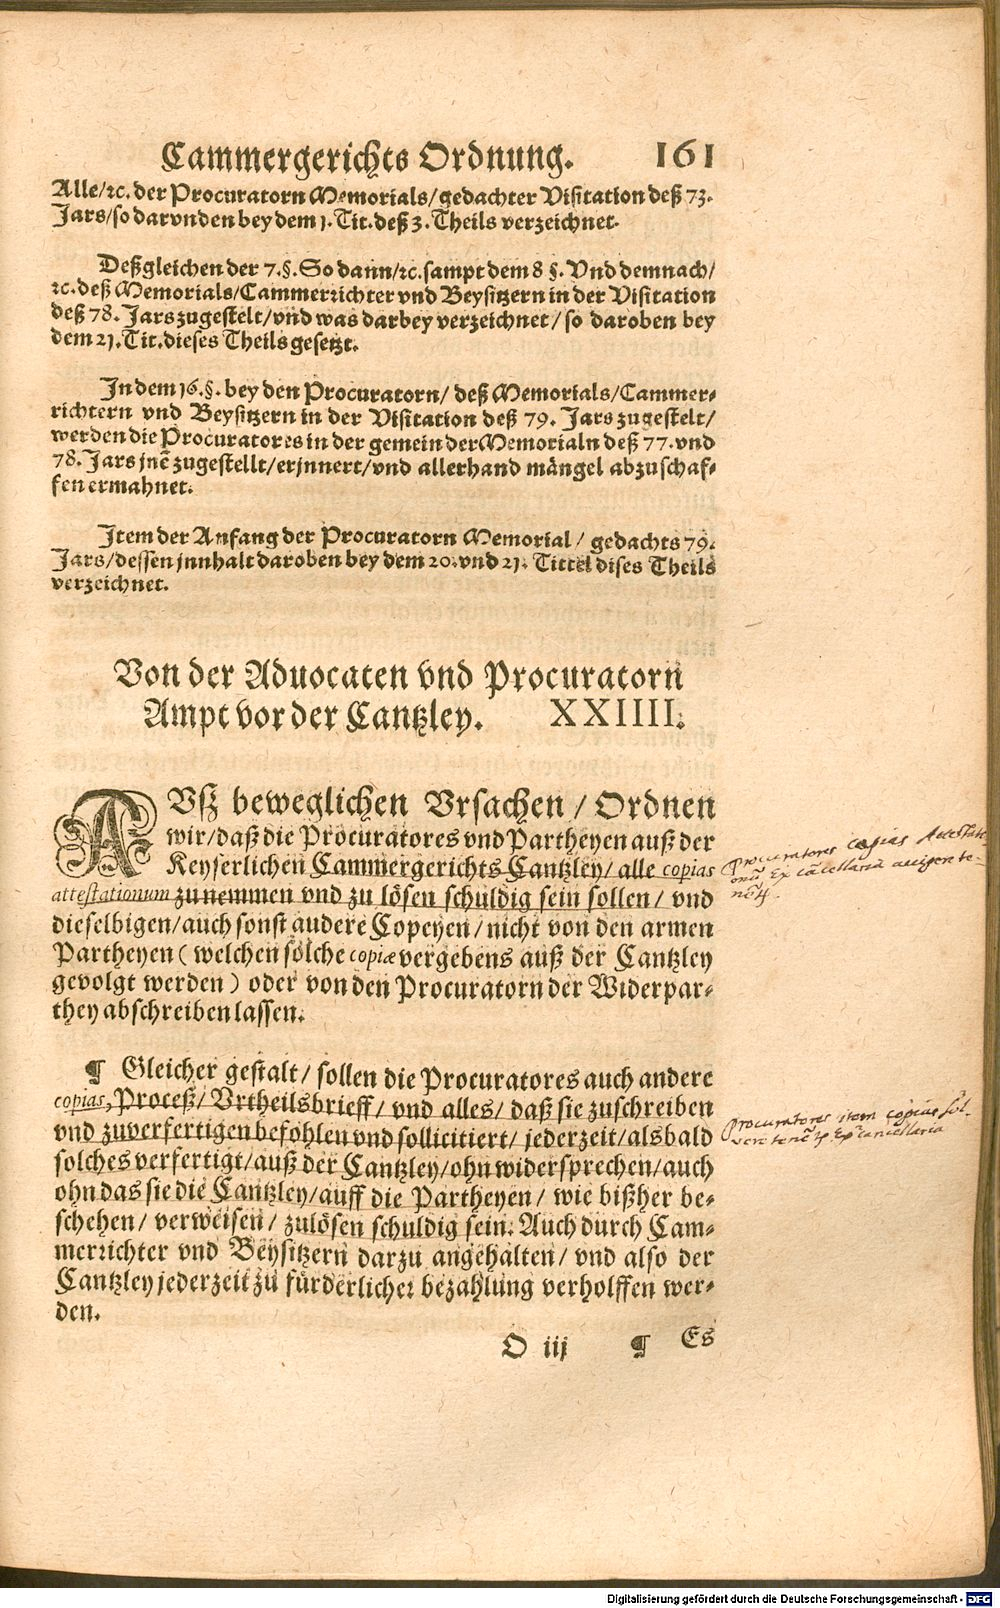 Cammergerichts Ordnung. 161
Alle/ꝛc. der Procuratorn Memorials/gedachter Visitation deß 73.
Jars/so darvnden bey dem 1. Tit. deß 3. Theils verzeichnet.
Deßgleichen der 7. §. So dann/ꝛc. sampt dem 8 §. Vnd demnach/
ꝛc. deß Memorials/Cammerrichter vnd Beysitzern in der Visitation
deß 78. Jars zugestelt/vnd was darbey verzeichnet/so daroben bey
dem 21. Tit. dieses Theils gesetzt.
In dem 16. §. bey den Procuratorn/deß Memorials/Cammer-
richtern vnd Beysitzern in der Visitation deß 79. Jars zugestelt/
werden die Procuratores in der gemein der Memorialn deß 77. vnd
78. Jars jnē zugestellt/erjnnert/vnd allerhand mängel abzuschaf-
fen ermahnet.
Item der Anfang der Procuratorn Memorial/gedachts 79.
Jars/dessen jnnhalt daroben bey dem 20. vnd 21. Tittel dises Theils
verzeichnet.
Von der Aduocaten vnd Procuratorn
Ampt vor der Cantzley. XXIIII.
AVsz beweglichen Vrsachen/Ordnen
wir/daß die Procuratores vnd Partheyen auß der
Keyserlichen Cammergerichts Cantzley/alle copias
attestationum zu nemmen vnd zu lösen schuldig sein sollen/vnd
dieselbigen/auch sonst andere Copeyen/nicht von den armen
Partheyen (welchen solche copiæ vergebens auß der Cantzley
gevolgt werden) oder von den Procuratorn der Widerpar-
they abschreiben lassen.
Procuratores copias Attestati-
onū Ex cācellaria
¶ Gleicher gestalt/sollen die Procuratores auch andere
copias, Proceß/Vrtheilsbrieff/vnd alles/daß sie zuschreiben
vnd zuverfertigen befohlen vnd sollicitiert/jederzeit/alsbald
solches verfertigt/auß der Cantzley/ohn widersprechen/auch
ohn das sie die Cantzley/auff die Partheyen/wie bißher be-
schehen/verweisen/zulösen schuldig sein. Auch durch Cam-
merrichter vnd Beysitzern darzu angehalten/vnd also der
Cantzley jederzeit zu fürderlicher bezahlung verholffen wer-
den.
Procuratores item copias sol-
Ex cancellaria
O iij ¶ Es
Digitalisierung gefördert durch die Deutsche Forschungsgemeinschaft - DFG